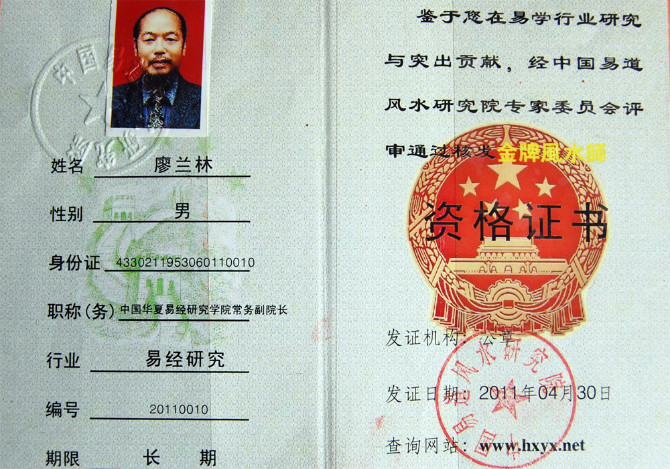 姓名 廖兰林
性别 男
身份证 4330211953060110010
职称(务) 中国华夏易经研究学院常务副院长
行业 易经研究
编号 20110010
期限 长 期
鉴于您在易学行业研究
与突出贡献，经中国易道
风水研究院专家委员会评
审通过核发金牌風水師
资格证书
发证机构：公章
发证日期：2011年04月30日
查询网站：www.hxyx.net
中国易道风水研究院